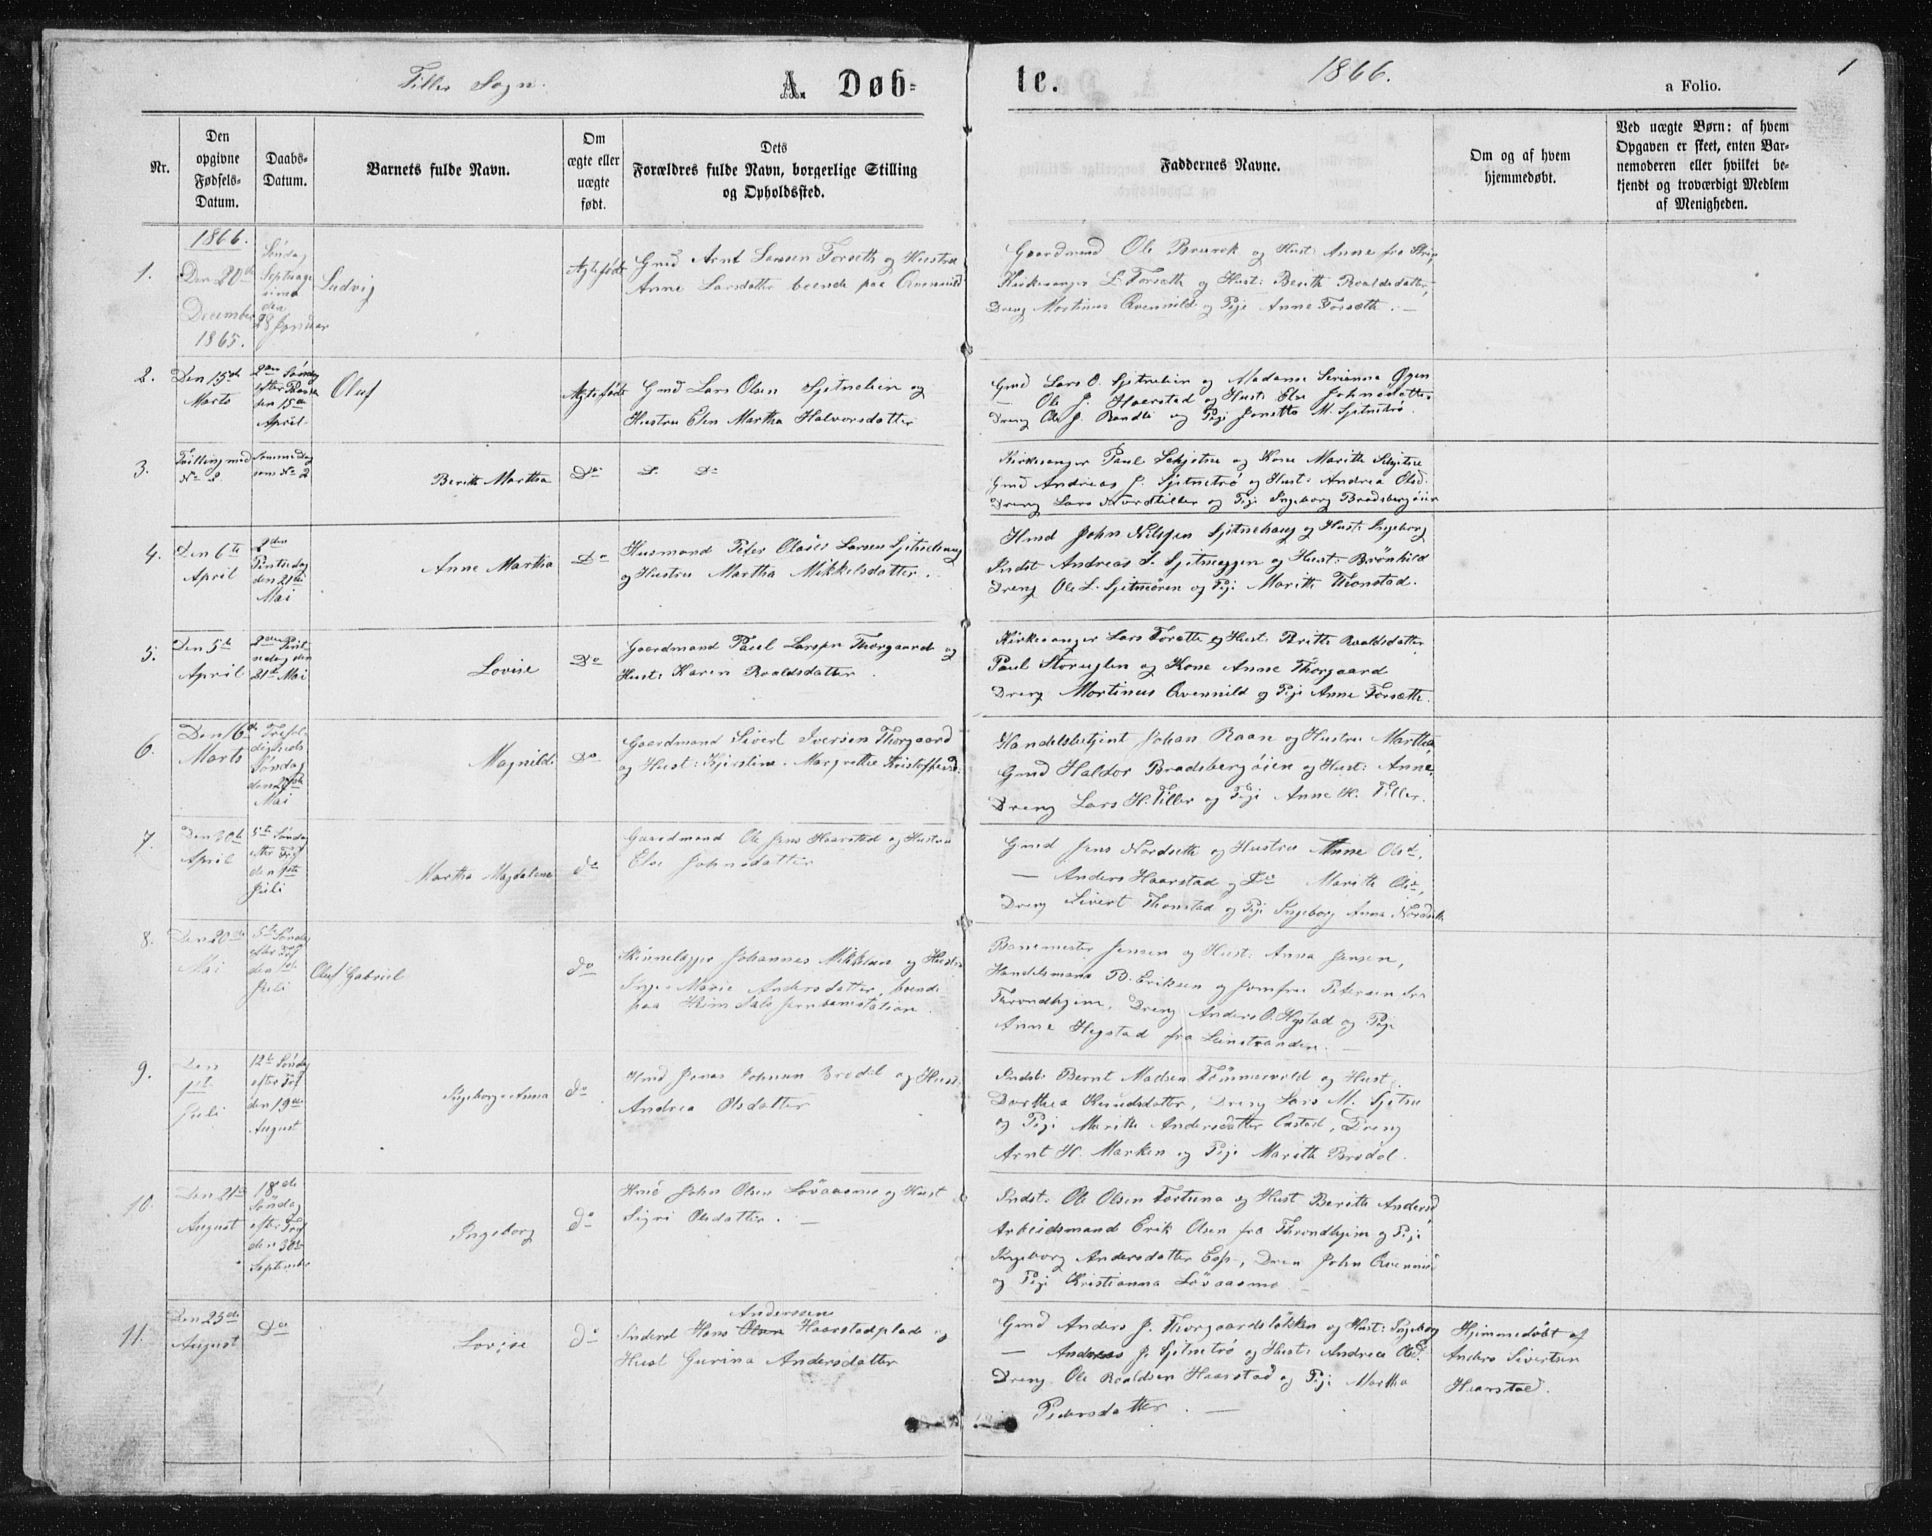 Tiller Sogn.
A. Døb-
te.
1866.
1
a Folio.
Nr.
Den
opgivne
Fødsels-
Datum.
Daabs-
Datum.
Barnets fulde Navn.
Om
ægte eller
uægte
født.
Dets
Forældres fulde Navn, borgerlige Stilling
og Opholdssted.
Faddernes Navne.
Om og af hvem
hjemmedøbt.
Ved uægte Børn: af hvem
Opgaven er skeet, enten Bar-
nemoderen eller hvilket be-
kjendt og troværdigt Medlem
af Menigheden.
1866.
1.
Den 20de
December
1865.
Søndag
Septuage
sima
den
28 Januar
Ludvig
Ægtefødt
Gmd Arnt Larsen Forseth og Hustru
Anne Larsdatter boende paa Qvennild
Gaardmand Ole Brurok og Hust: Anne fra
Kirkesanger L. Forseth og Hust: Berith Roaldsdatter,
Dreng Mortinus Qvennild og Pige Anne Forsæth. —
2.
Den 15de
Marts
2den Søndag
efter Paaske
den 15de
April
Oluf
Ægtefødt
Gmd Lars Olsen Sjetnelien og
Hustru Elen Martha Halvorsdatter
Gmd Lars O. Sjetnelien og Madame Serianna Øyen
— Ole J. Haarstad og Hust: Else Johnsdatter
Dreng Ole J. Randli og Pige Jonetta M. Sjetnetrø.
3.
Tvilling med
No 2
Samme Dag
som No 2
Berith Martha
Do
D. Do
Kirkesanger Paul Schjetne og Kone Marith Schjetne
Gmd Andreas J. Sjetnetrø og Hust: Andrea Olsd.
Dreng Lars Nordtiller og Pige Ingeborg Bradsbergøien
4.
Den 6te
April
2den
Pintsedag
den 21de
Mai
Anne Martha
Do
Husmand Peter Olaus Larsen Sjetnehaug
og Hustru Martha Mikkelsdatter.
Hmd John Nilssen Sjetnehaug og Hust: Ingeborg
Indst Andreas S. Sjetneeggen og Hust: Brønhild
Dreng Ole L. Sjetnøren og Pige Marith Thonstad.
5.
Den 5te
April
2den Pint-
sedag den
21de Mai
Lovise
Do
Gaardmand Paul Larsen Thorgaard og
Hust: Karen Roaldsdatter.
Kirkesanger Lars Forseth og Hust: Brith Roaldsdatter
Paul Storuglen og Kone Anne Thorgaard
Dreng Mortinus Qvennild og Pige Anne Forsæth.
6.
Den 16de
Marts
Trefol-
digheds
Søndag
den 27de
Mai
Magnild
Do
Gaardmand Sivert Iversen Thorgaard
og Hust: Kjerstine Margrethe Kristoffersd.
Handelsbetjent Johan Raan og Hustru Martha
Gmd Haldor Bradsbergøien og Hust: Anne,
Dreng Lars H. Tiller og Pige Anne H. Tiller.
7.
Den 20de
April
5te Søndag
efter Tref
den 1ste
Juli
Martha Magdalena
do
Gaardmand Ole Jens Haarstad og Hustru
Else Johnsdatter
Gmd Jens Nordseth og Hustru Anne Olsd,
— Anders Haarstad og Do Marith Olsd,
Dreng Sivert Thonstad og Pige Ingeborg Anna Nordseth
8.
Den 20de
Mai
5te Søndag
efter Tref
den 1ste
Juli
Oluf Gabriel
do
Skinnelægger Johannes Mikklsen og Hustru
Inger Marie Andersdatter, boende
paa Heimdals Jernbanestation.
Banemester Jensen og Hust: Anna Jensen,
Handelsmand D. Eriksen og Jomfru Petersen fra
Throndhjem, Dreng Anders O. Hegstad og Pige
Anne Hegstad fra Leinstranden. —
9.
Den
1ste
Juli
12te Søndag
efter Tref
den 19de
August
Ingeborg Anna
do
Hmd Jonas Johnsen Brødel og Hust:
Andrea Olsdatter
Indst: Bernt Madsen Tømmervold og Hust
Dorthea Knudsdatter, Dreng Lars M. Sjetne
og Pige Marith Andersdatter Casted, Dreng
Arnt H. Marken og Pige Marith Brødel.
10.
Den 21de
August
18de
Søndag
efter Tref
den 30te
September
Ingeborg
do
Hmd John Olsen Løvaasmo og Hust
Sigri Olsdatter. —
Indst: Ole Olsen Fortuna og Hust Berith Andersd
Arbeidsmand Erik Olsen fra Throndhjem og Pige
Ingeborg Andersdatter Esp, Dren John Qvennild
og Pige Kristianna Løvaasmo
11.
Den 25de
August
Do
Lovise
do
Anderssen
Inderst Hans Olsen Haarstadplads og
Hust Gurina Andersdatter
Gmd Anders J. Thorgaardsløkken og Hust: Ingeborg
— Andreas J. Sjetnetrø og Hust: Andrea Olsd.
Dreng Ole Roaldsen Haarstad og Pige Martha
Pedersdatter. —
Hjemmedøbt af
Anders Sivertsen
Haarstad.